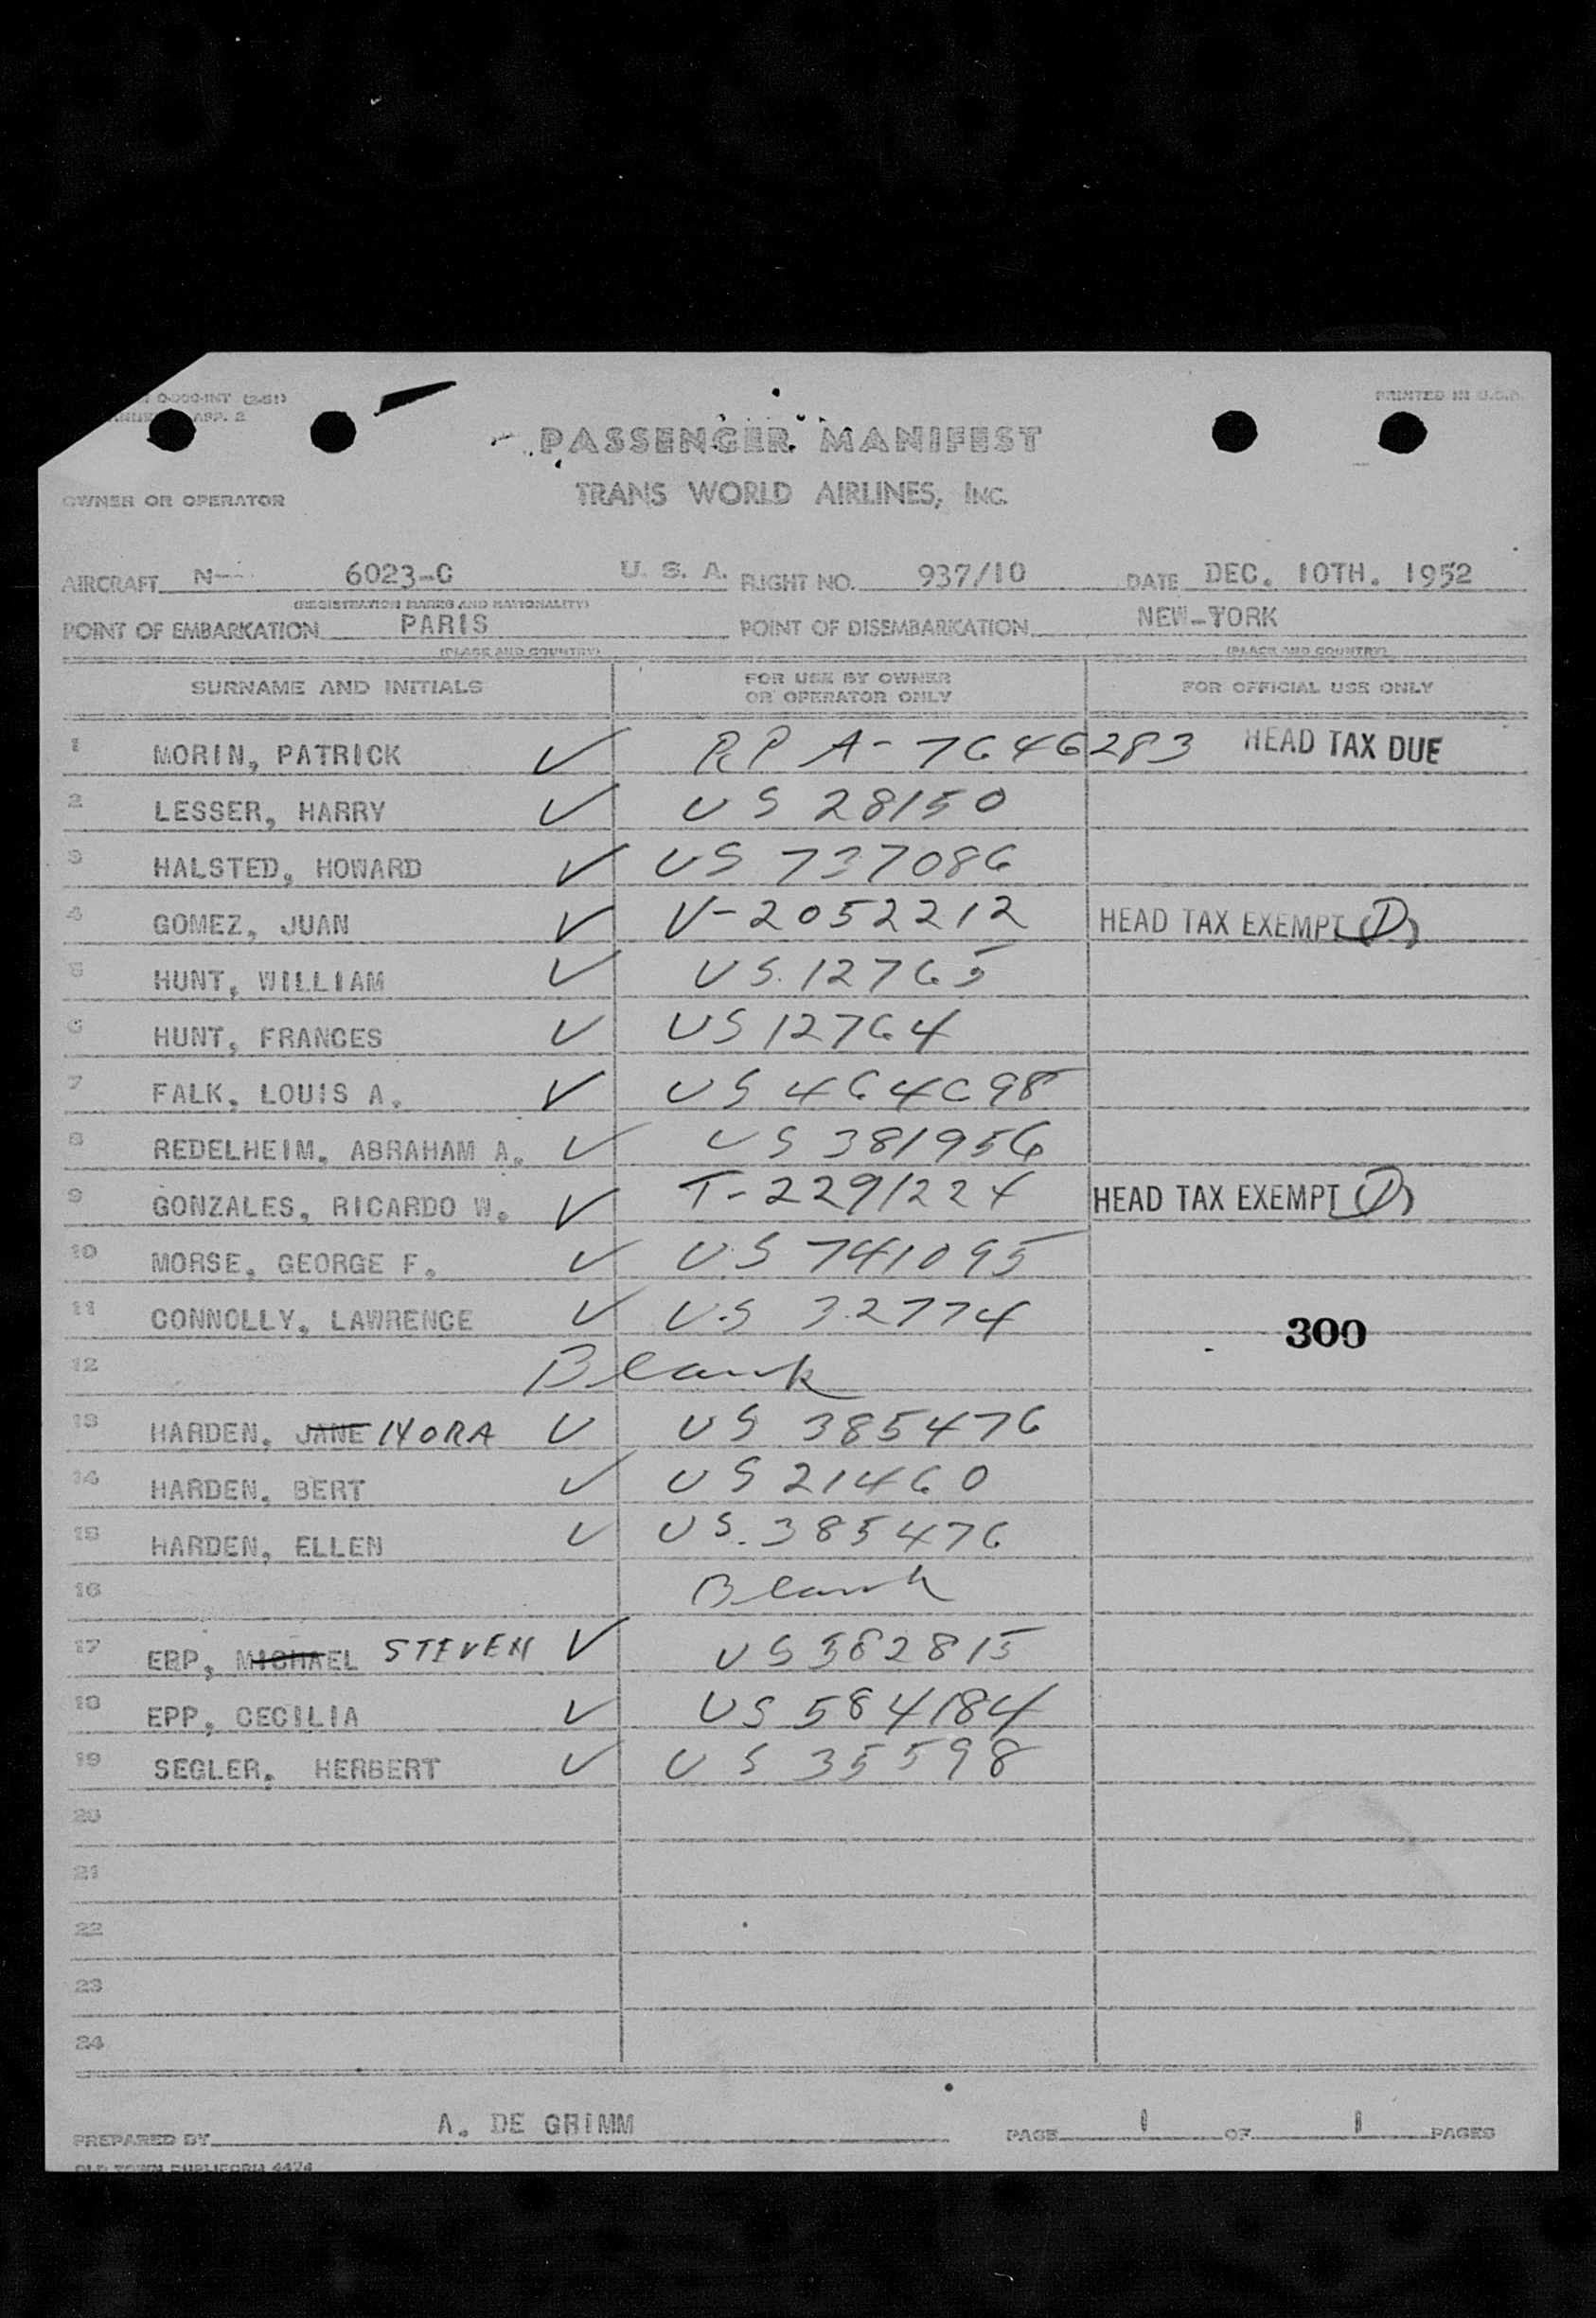 0-000-INT (2-51)
APP. 2
PRINTED IN U.S.A.
PASSENGER MANIFEST
OWNER OR OPERATOR TRANS WORLD AIRLINES, INC.
AIRCRAFT N- 6023-C U. S. A. FLIGHT NO. 937/10 DATE DEC. 10TH. 1952
(REGISTRATION MARKS AND NATIONALITY)
POINT OF EMBARKATION PARIS POINT OF DISEMBARKATION NEW-YORK
(PLACE AND COUNTRY) (PLACE AND COUNTRY)
SURNAME AND INITIALS FOR USE BY OWNER OR OPERATOR ONLY FOR OFFICIAL USE ONLY
1 MORIN, PATRICK ✓ RP A-7646283 HEAD TAX DUE
2 LESSER, HARRY ✓ US 28150
3 HALSTED, HOWARD ✓ US 737086
4 GOMEZ, JUAN ✓ V-2052212 HEAD TAX EXEMPT (D)
5 HUNT, WILLIAM ✓ US.12765
6 HUNT, FRANCES ✓ US 12764
7 FALK, LOUIS A. ✓ US 464698
8 REDELHEIM, ABRAHAM A. ✓ US 381956
9 GONZALES, RICARDO W. ✓ T-2291224 HEAD TAX EXEMPT (D)
10 MORSE, GEORGE F. ✓ US 741095
11 CONNOLLY, LAWRENCE ✓ US 32774
300
12 Blank
13 HARDEN, JANE NORA ✓ US 385476
14 HARDEN, BERT ✓ US 21460
15 HARDEN, ELLEN ✓ US.385476
16 Blank
17 EPP, MICHAEL STEVEN ✓ US 582815
18 EPP, CECILIA ✓ US 584184
19 SEGLER, HERBERT ✓ US 35598
20
21
22
23
24
PREPARED BY A. DE GRIMM PAGE 1 OF 1 PAGES
OLD TOWN DUPLIFORM 4474